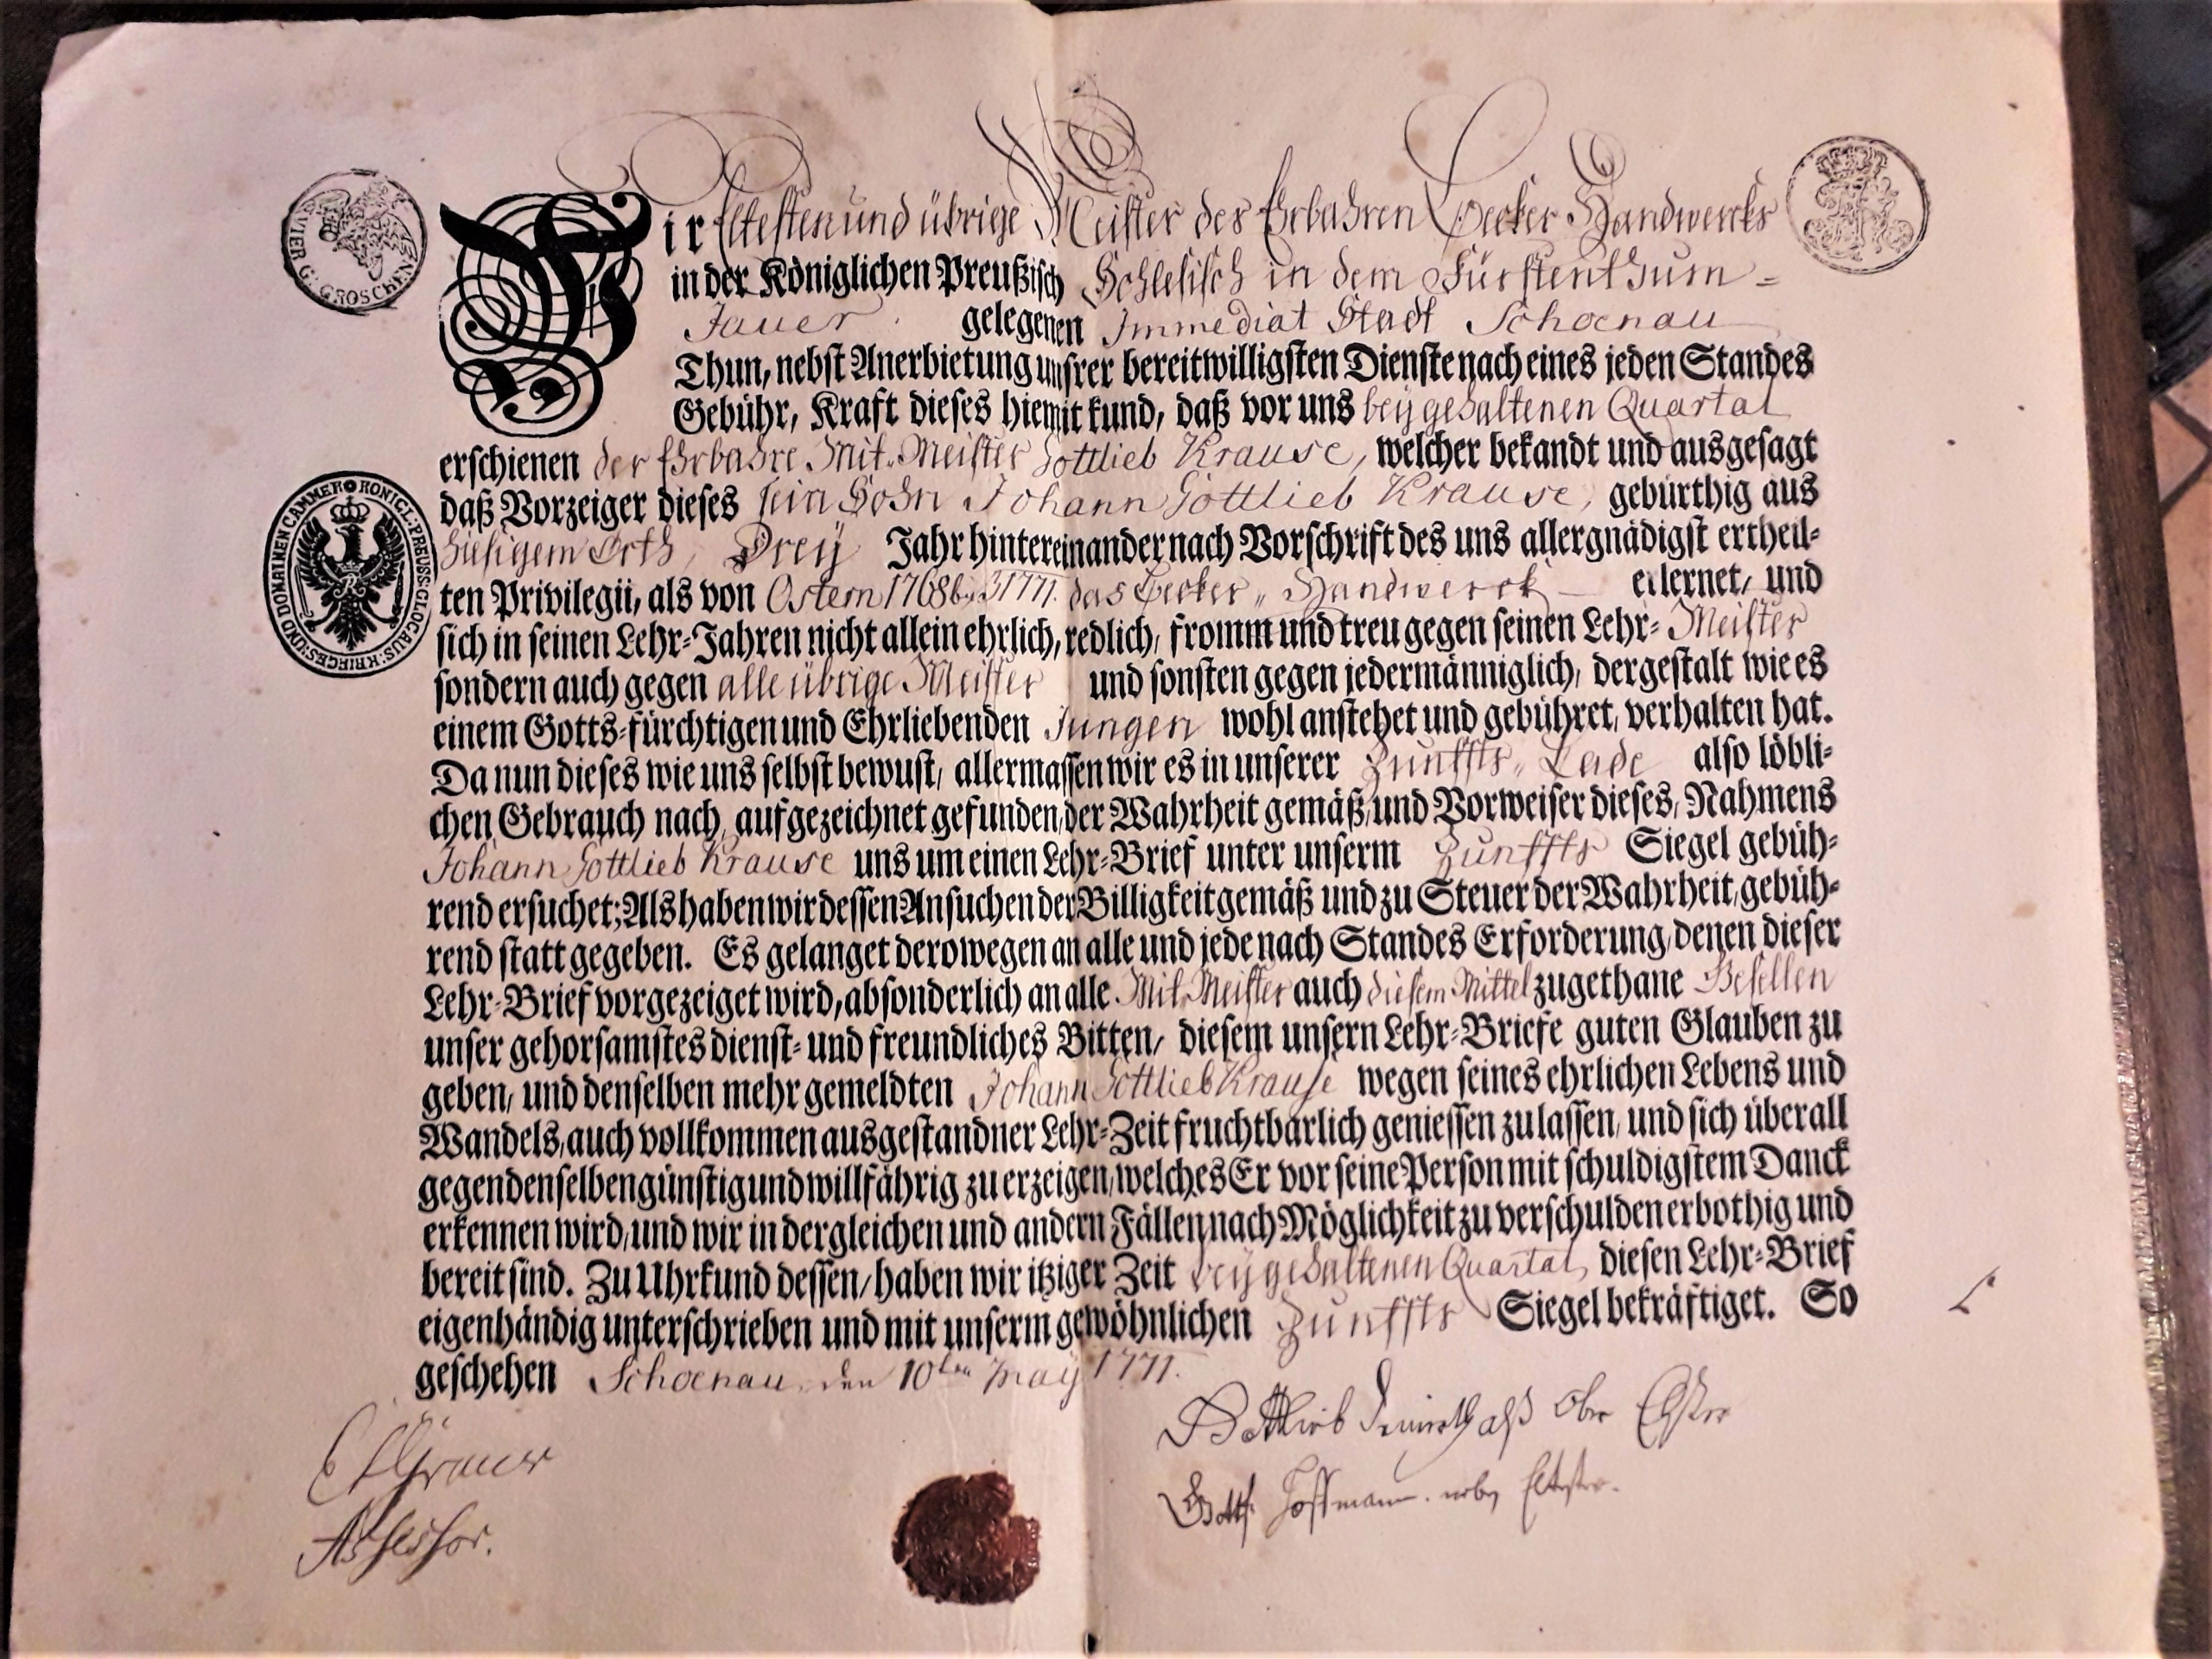 VIER G. GROSCHEN
FR
Wir Eltesten und übrige Meister des Ehrbahren Becker Handwercks
in der Königlichen Preußisch Schlesisch in dem Fürstenthum-
Jauer gelegenen Immediat Stadt Schoenau
Thun, nebst Anerbietung unsrer bereitwilligsten Dienste nach eines jeden Standes
Gebühr, Kraft dieses hiemit kund, daß vor uns bey gehaltenen Quartal
erschienen der Ehrbahre Mit-Meister Gottlieb Krause, welcher bekandt und ausgesagt
daß Vorzeiger dieses sein Sohn Johann Gottlieb Krause, gebürthig aus
hiesigem Orth, Drey Jahr hintereinander nach Vorschrift des uns allergnädigst ertheil-
ten Privilegii, als von Ostern 1768 bis 1771. das Becker-Handwerck erlernet, und
sich in seinen Lehr-Jahren nicht allein ehrlich, redlich, fromm und treu gegen seinen Lehr-Meister
sondern auch gegen alle übrige Meister und sonsten gegen jedermänniglich, dergestalt wie es
einem Gotts-fürchtigen und Ehrliebenden Jungen wohl anstehet und gebühret, verhalten hat.
Da nun dieses wie uns selbst bewust, allermassen wir es in unserer Zunffts-Lade also löbli-
chen Gebrauch nach, aufgezeichnet gefunden, der Wahrheit gemäß, und Vorweiser dieses, Nahmens
Johann Gottlieb Krause uns um einen Lehr-Brief unter unserm Zunffts Siegel gebüh-
rend ersuchet; Als haben wir dessen Ansuchen der Billigkeit gemäß und zu Steuer der Wahrheit, gebüh-
rend statt gegeben. Es gelanget derowegen an alle und jede nach Standes Erforderung, denen dieser
Lehr-Brief vorgezeiget wird, absonderlich an alle Mit-Meister auch diesem Mittel zugethane Gesellen
unser gehorsamstes dienst- und freundliches Bitten, diesem unsern Lehr-Briefe guten Glauben zu
geben, und denselben mehr gemeldten Johann Gottlieb Krause wegen seines ehrlichen Lebens und
Wandels, auch vollkommen ausgestandner Lehr-Zeit fruchtbarlich geniessen zu lassen, und sich überall
gegen denselben günstig und willfährig zu erzeigen, welches Er vor seine Person mit schuldigstem Danck
erkennen wird, und wir in dergleichen und andern Fällen nach Möglichkeit zu verschulden erbothig und
bereit sind. Zu Uhrkund dessen, haben wir itziger Zeit bey gehaltenen Quartal, diesen Lehr-Brief
eigenhändig unterschrieben und mit unserm gewöhnlichen Zunffts Siegel bekräftiget. So
geschehen Schoenau, den 10ten May 1771.
KONIGL: PREUSS: GLOGAUS: KRIEGES: UND DOMAINEN CAMMER
Gottlieb als Ober Eltster
Gottf. Hoffmann. neben Eltester.
Assessor.